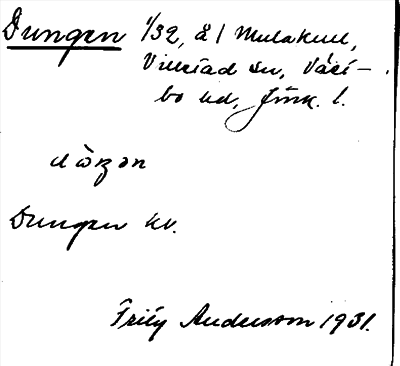 Dungen 1/32, å l Mulakull,
Villstad sn, Väst-
bo hd, Jönk. l.
dùŋən
Dungen kv.
Fritz Andersson 1931.